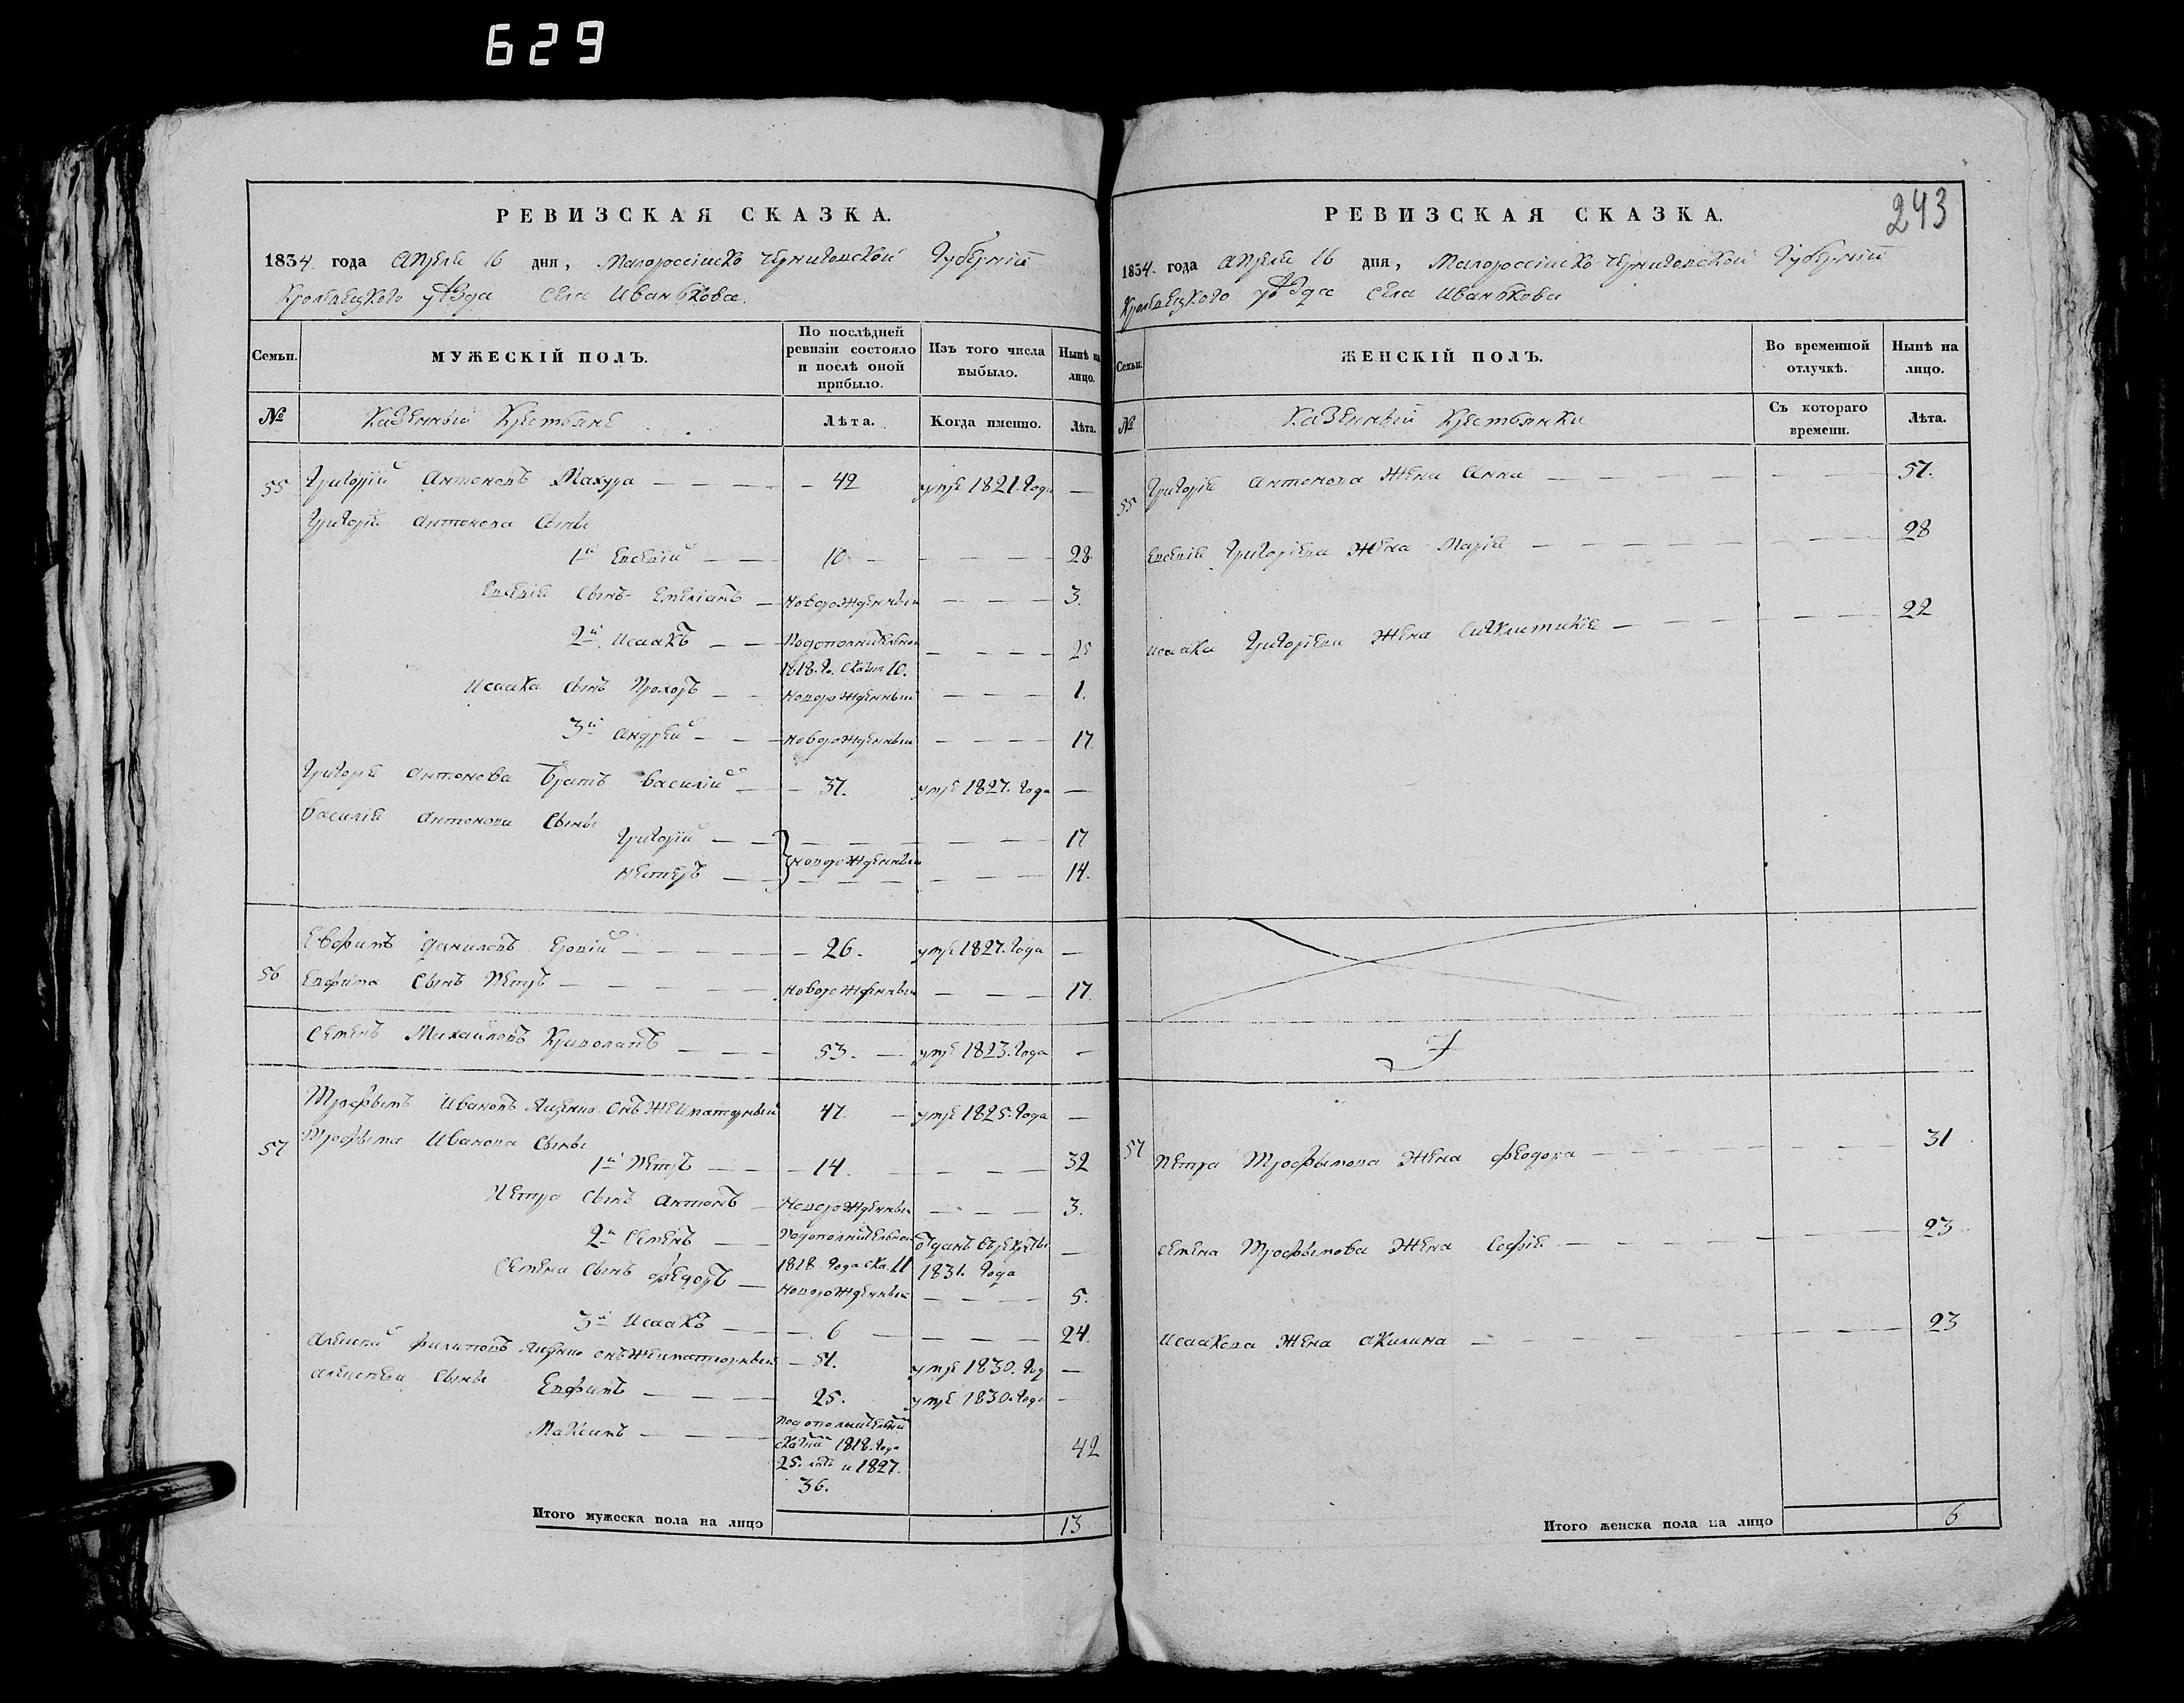 629
РЕВИЗСКАЯ СКАЗКА.
1834. года Апреля 16 дня, Малороссійско Черниговской Губерніи
Кролевецкого уѣзда Села Иванькова.
Семьи.
МУЖЕСКІЙ ПОЛЪ.
По послѣдней ревизіи состояло и послѣ оной прибыло.
Изъ того числа выбыло.
Нынѣ на лицо.
№
Казенный Крестьяне
Лѣта.
Когда именно.
Лѣта.
55 Григорій Антоновъ Махура — 42 умре 1821. Года —
Григорія Антонова Сыны
1й Евсевій — 10 — 28
Евсевія Сынъ Емеліанъ — новорожденный — 3.
2й Исаакъ — Подополнительной 1818. Го. сказки 10. — 25
Исаака Сынъ Прохоръ — новорожденный — 1.
3й Андрей — новорожденный — 17.
Григорія Антонова Братъ Василій — 37. умре 1827. Года —
Василія Антонова Сыны
Григорій — — 17
новорожденныи
Нестеръ — — 14.
Евфимъ Даниловъ — 26. умре 1827. Года —
56 Евфима Сынъ Петръ — новорожденный — 17.
Семенъ Михайловъ Криволапъ — 53. — умре 1823. Года —
Трофымъ Ивановъ 47. — умре 1825. Года —
57 Трофыма Иванова Сыны
1й Петръ — 14. — 32
Петра Сынъ Антонъ — Новорожденный — 3.
2й Семенъ — Подополнительной 1818 Года ска. 11 1831. Года —
Семена Сынъ Федоръ — новорожденный — 5.
3й Исаакъ — 6 — 24.
Алексей Филиповъ — 51. умре 1830. Год —
Алексеея Сыны Евфимъ — 25. умре 1830. Года —
Максимъ — подополнительной сказки 1818. Года 25. летъ и 1827. 36. 42
Итого мужеска пола на лицо 13
243
РЕВИЗСКАЯ СКАЗКА.
1834. года Апреля 16 дня, Малороссійско-Черниговской Губерніи
Кролевецкого уѣзда Села Иванькова
Семьи.
ЖЕНСКІЙ ПОЛЪ.
Во временной отлучкѣ.
Нынѣ на лицо.
№
Казенный Крестьянки
Съ котораго времени.
Лѣта.
55 Григорія Антонова Жена Анна — 57.
Евсевія Григоріева Жена Марія — 28
Исаака Григоріева Жена — 22
57 Петра Трофымова Жена Феодора — 31
Семена Трофымова Жена Софія — 23
Исаакова Жена Акилина — 23
Итого женска пола на лицо 6